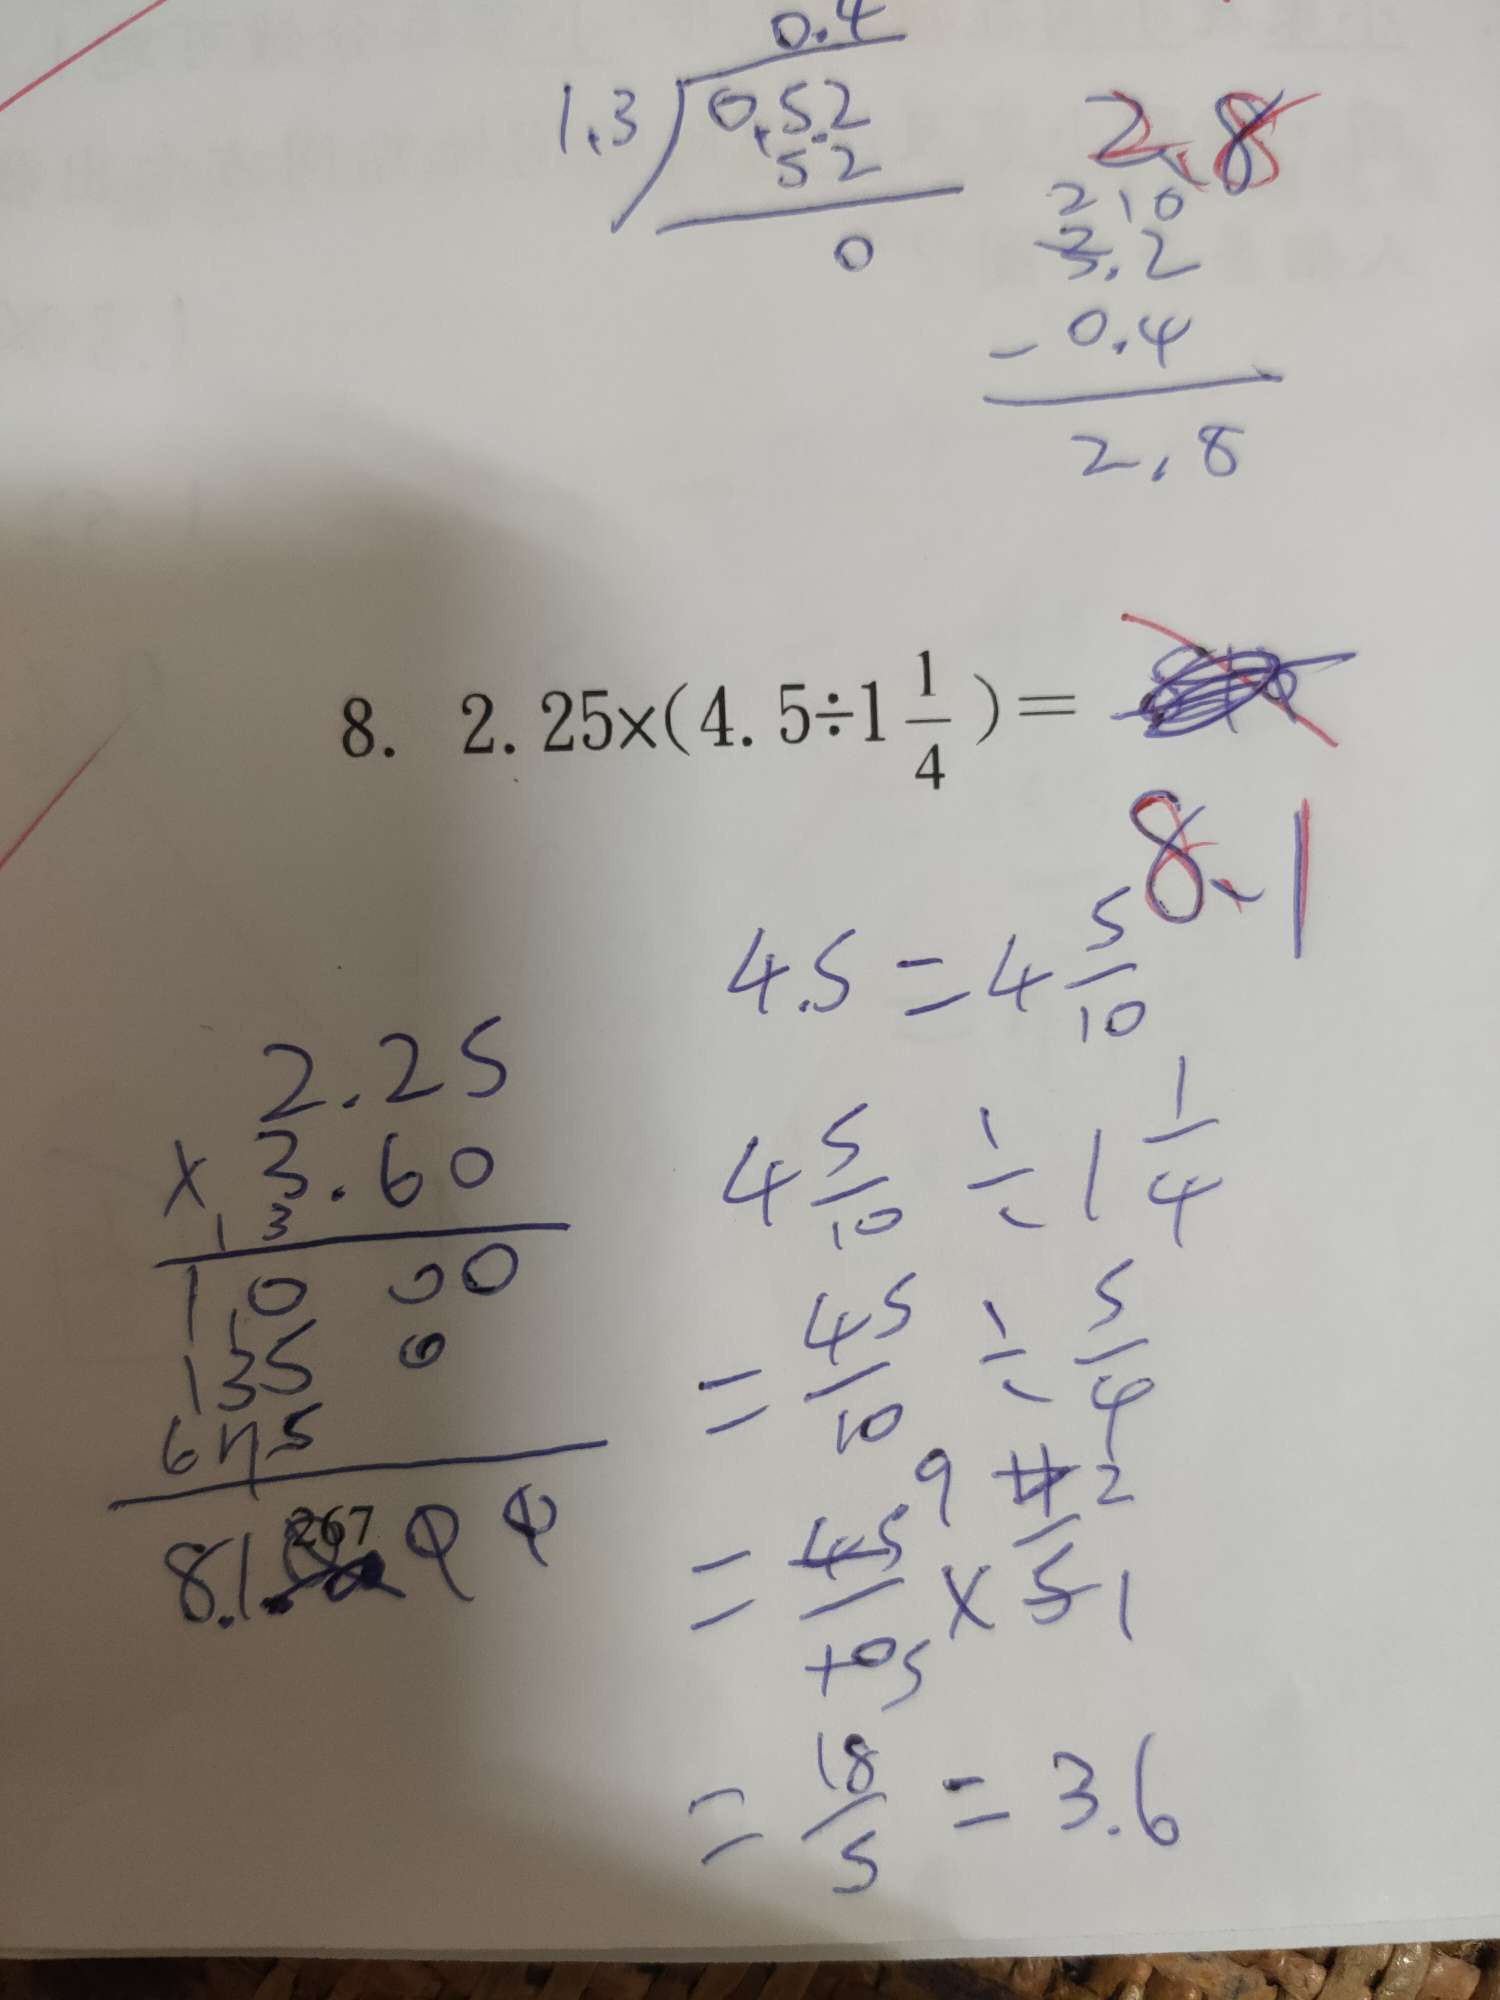 0.4
1.3 0.52
52
0
2.8
2 10
3.2
- 0.4
2.8
8. 2.25×(4.5÷1 1/4)=
8.1
4.5 = 4 5/10
4 5/10 ÷ 1 1/4
= 45/10 ÷ 5/4
= 45/10 × 4/5
9 2
5 1
= 18/5 = 3.6
2.25
× 3.60
1 3
1 0 0 0
135 0
675
8.1
267